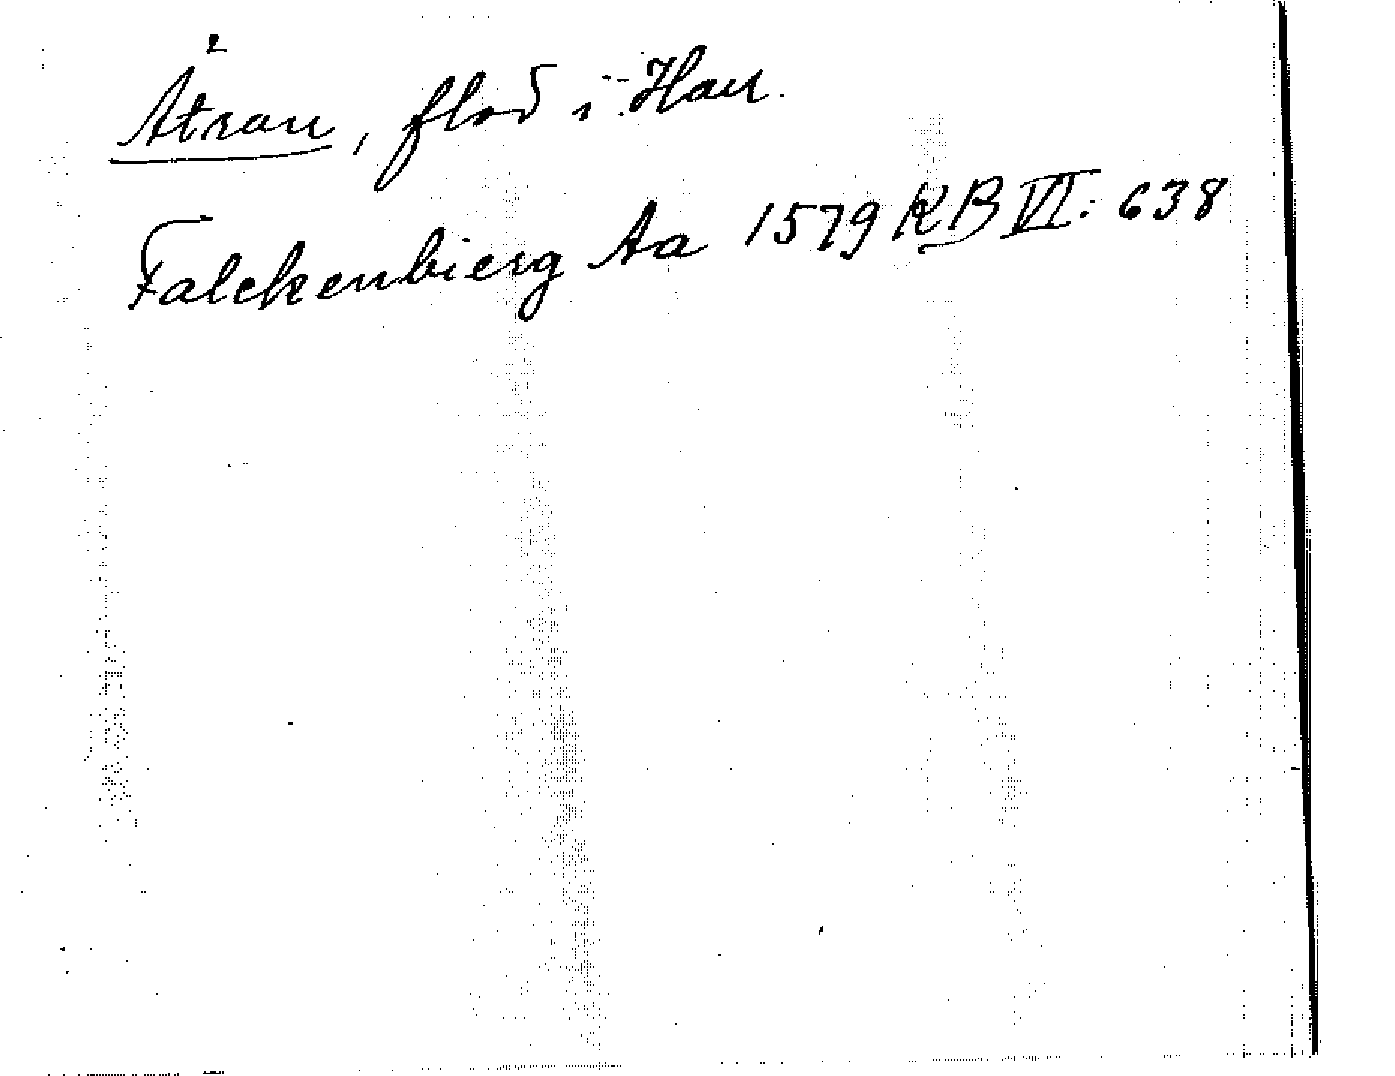 Ätran, flod i Han.
Falckenbierg Aa 1579 KB VI: 638